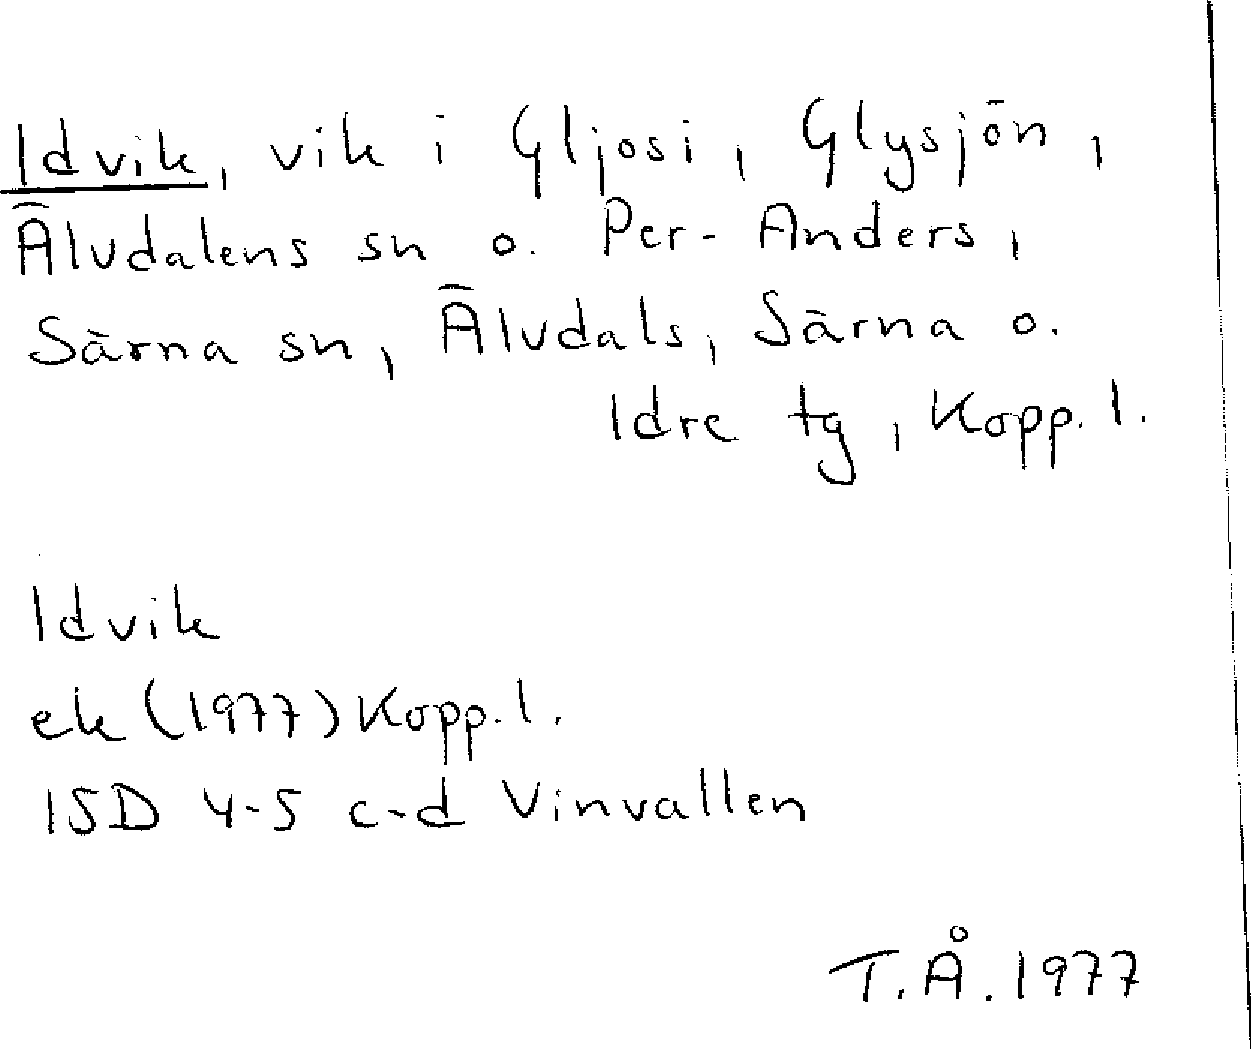 Idvik, vik i Gljosi, Glysjön,
Älvdalens sn o. Per-Anders,
Särna sn, Älvdals, Särna o.
Idre tg, Kopp. l.
Idvik
ek (1977) Kopp. l.
15D 4-5 c-d Vinvallen
T.Å. 1977